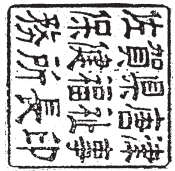 佐賀県唐津
保健福祉事
務所長印